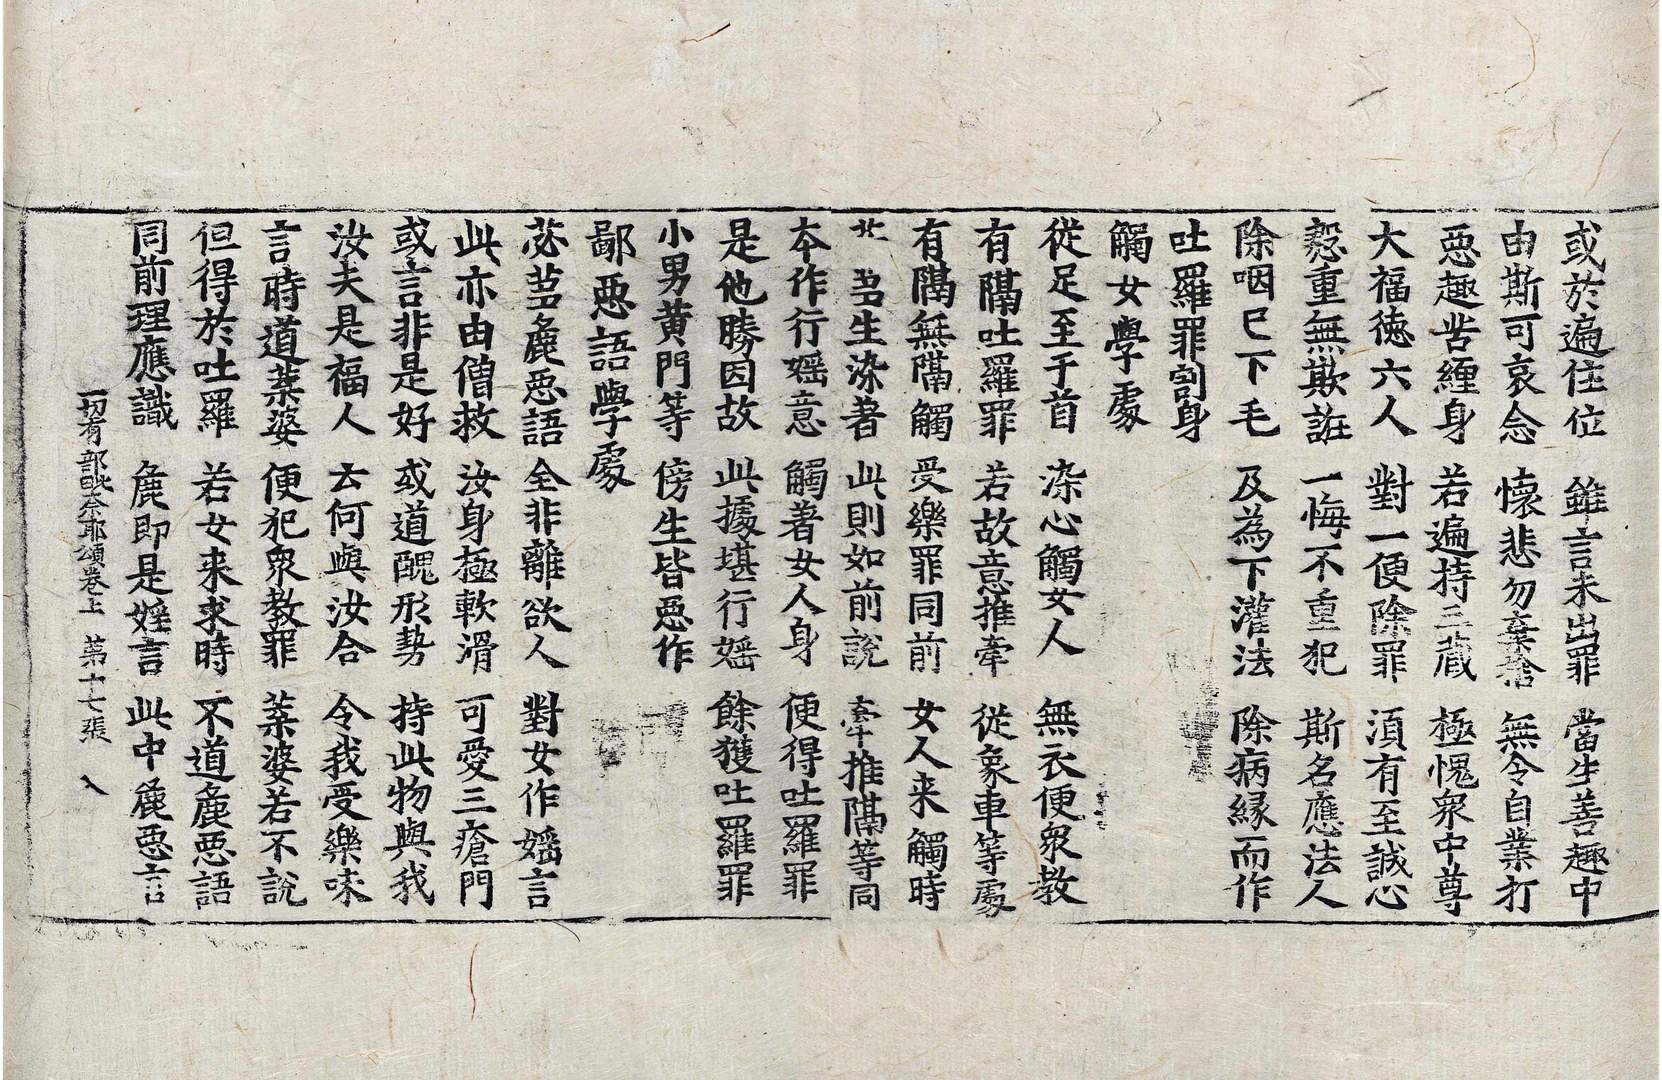 或於遍住位 雖言未出罪 當生善趣中
由斯可哀念 懷悲勿棄捨 無令自業打
惡趣苦纏身 若遍持三藏 極愧衆中尊
大福德六人 對一便除罪 湏有至誠心
慇重無欺誑 一悔不重犯 斯名應法人
除咽已下毛 及為下灌法 除病緣而作
吐羅罪割身
觸女學處
從足至于首 染心觸女人 無衣便衆教
有隔吐羅罪 若故意推牽 從象車等處
有隔無隔觸 受樂罪同前 女人来觸時
苾芻生染著 此則如前說 牽推隔等同
本作行婬意 觸著女人身 便得吐羅罪
是他勝因故 此據堪行婬 餘獲吐羅罪
小男黄門等 傍生皆惡作
鄙惡語學處
苾芻麁惡語 全非離欲人 對女作婬言
此亦由僧救 汝身極軟滑 可愛三瘡門
或言非是好 或道醜形勢 持此物與我
汝夫是福人 去何與汝合 令我受樂味
言時道葉婆 便犯衆教罪 葉婆若不說
但得於吐羅 若女来求時 不道麁惡語
同前理應識 麁即是婬言 此中麁惡言
一切有部毗奈耶頌卷上 第十七張 入